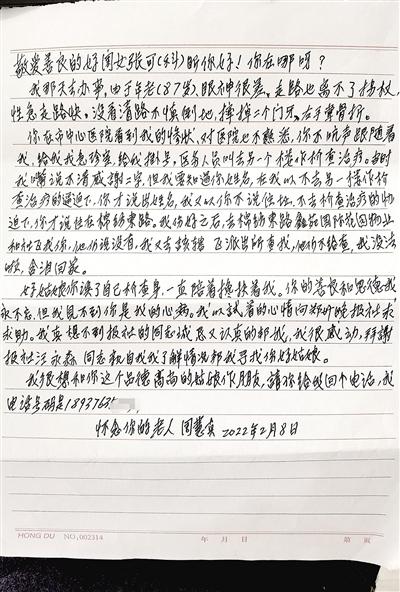 敬爱善良的好闺女张可(4斗)昕你好!你在哪呀?
我那天去办事,由于年老(87岁)眼神很差,走路也离不了拐杖,
性急走路快,没看清路不慎倒地,摔掉二个门牙,右手骨折。
你在市中心医院看到我的情况,对医院也不熟悉,你不吭声跟随着
我,给我找急诊室,给我挂号,医务人员叫去另一个楼作检查治疗。当时
我嘴说不清感谢二字,但我要知道你姓名,在我以不去另一楼作检
查治疗的逼迫下,你才说出姓名,我又以你不说住址,不去检查治疗的
迫下,你才说住在棉纺东路。我伤好之后,去棉纺东路 国际花园物业
和社区找你,他们说没有,我又去棉纺 派出所查找,他们不给查,我没法
啦,含泪回家。
好姑娘你误了自己检查身,一直陪着搀扶着我。你的善良和恩德我
永不忘,但我见不到你是我的心病。我以试着的心情向郑州晚报社求
求助。我真想不到报社的同志诚恳又认真的帮我,我很感动,拜谢
报社汪永森 同志和自我了解情况帮我寻找你好姑娘。
我很想和你这个品德高尚的姑娘作朋友,请你给我回个电话,我
电话号码是1893763
怀念你的老人 周慧真 2022年2月8日
HONG DU NO:002314 年 月 日 第 页